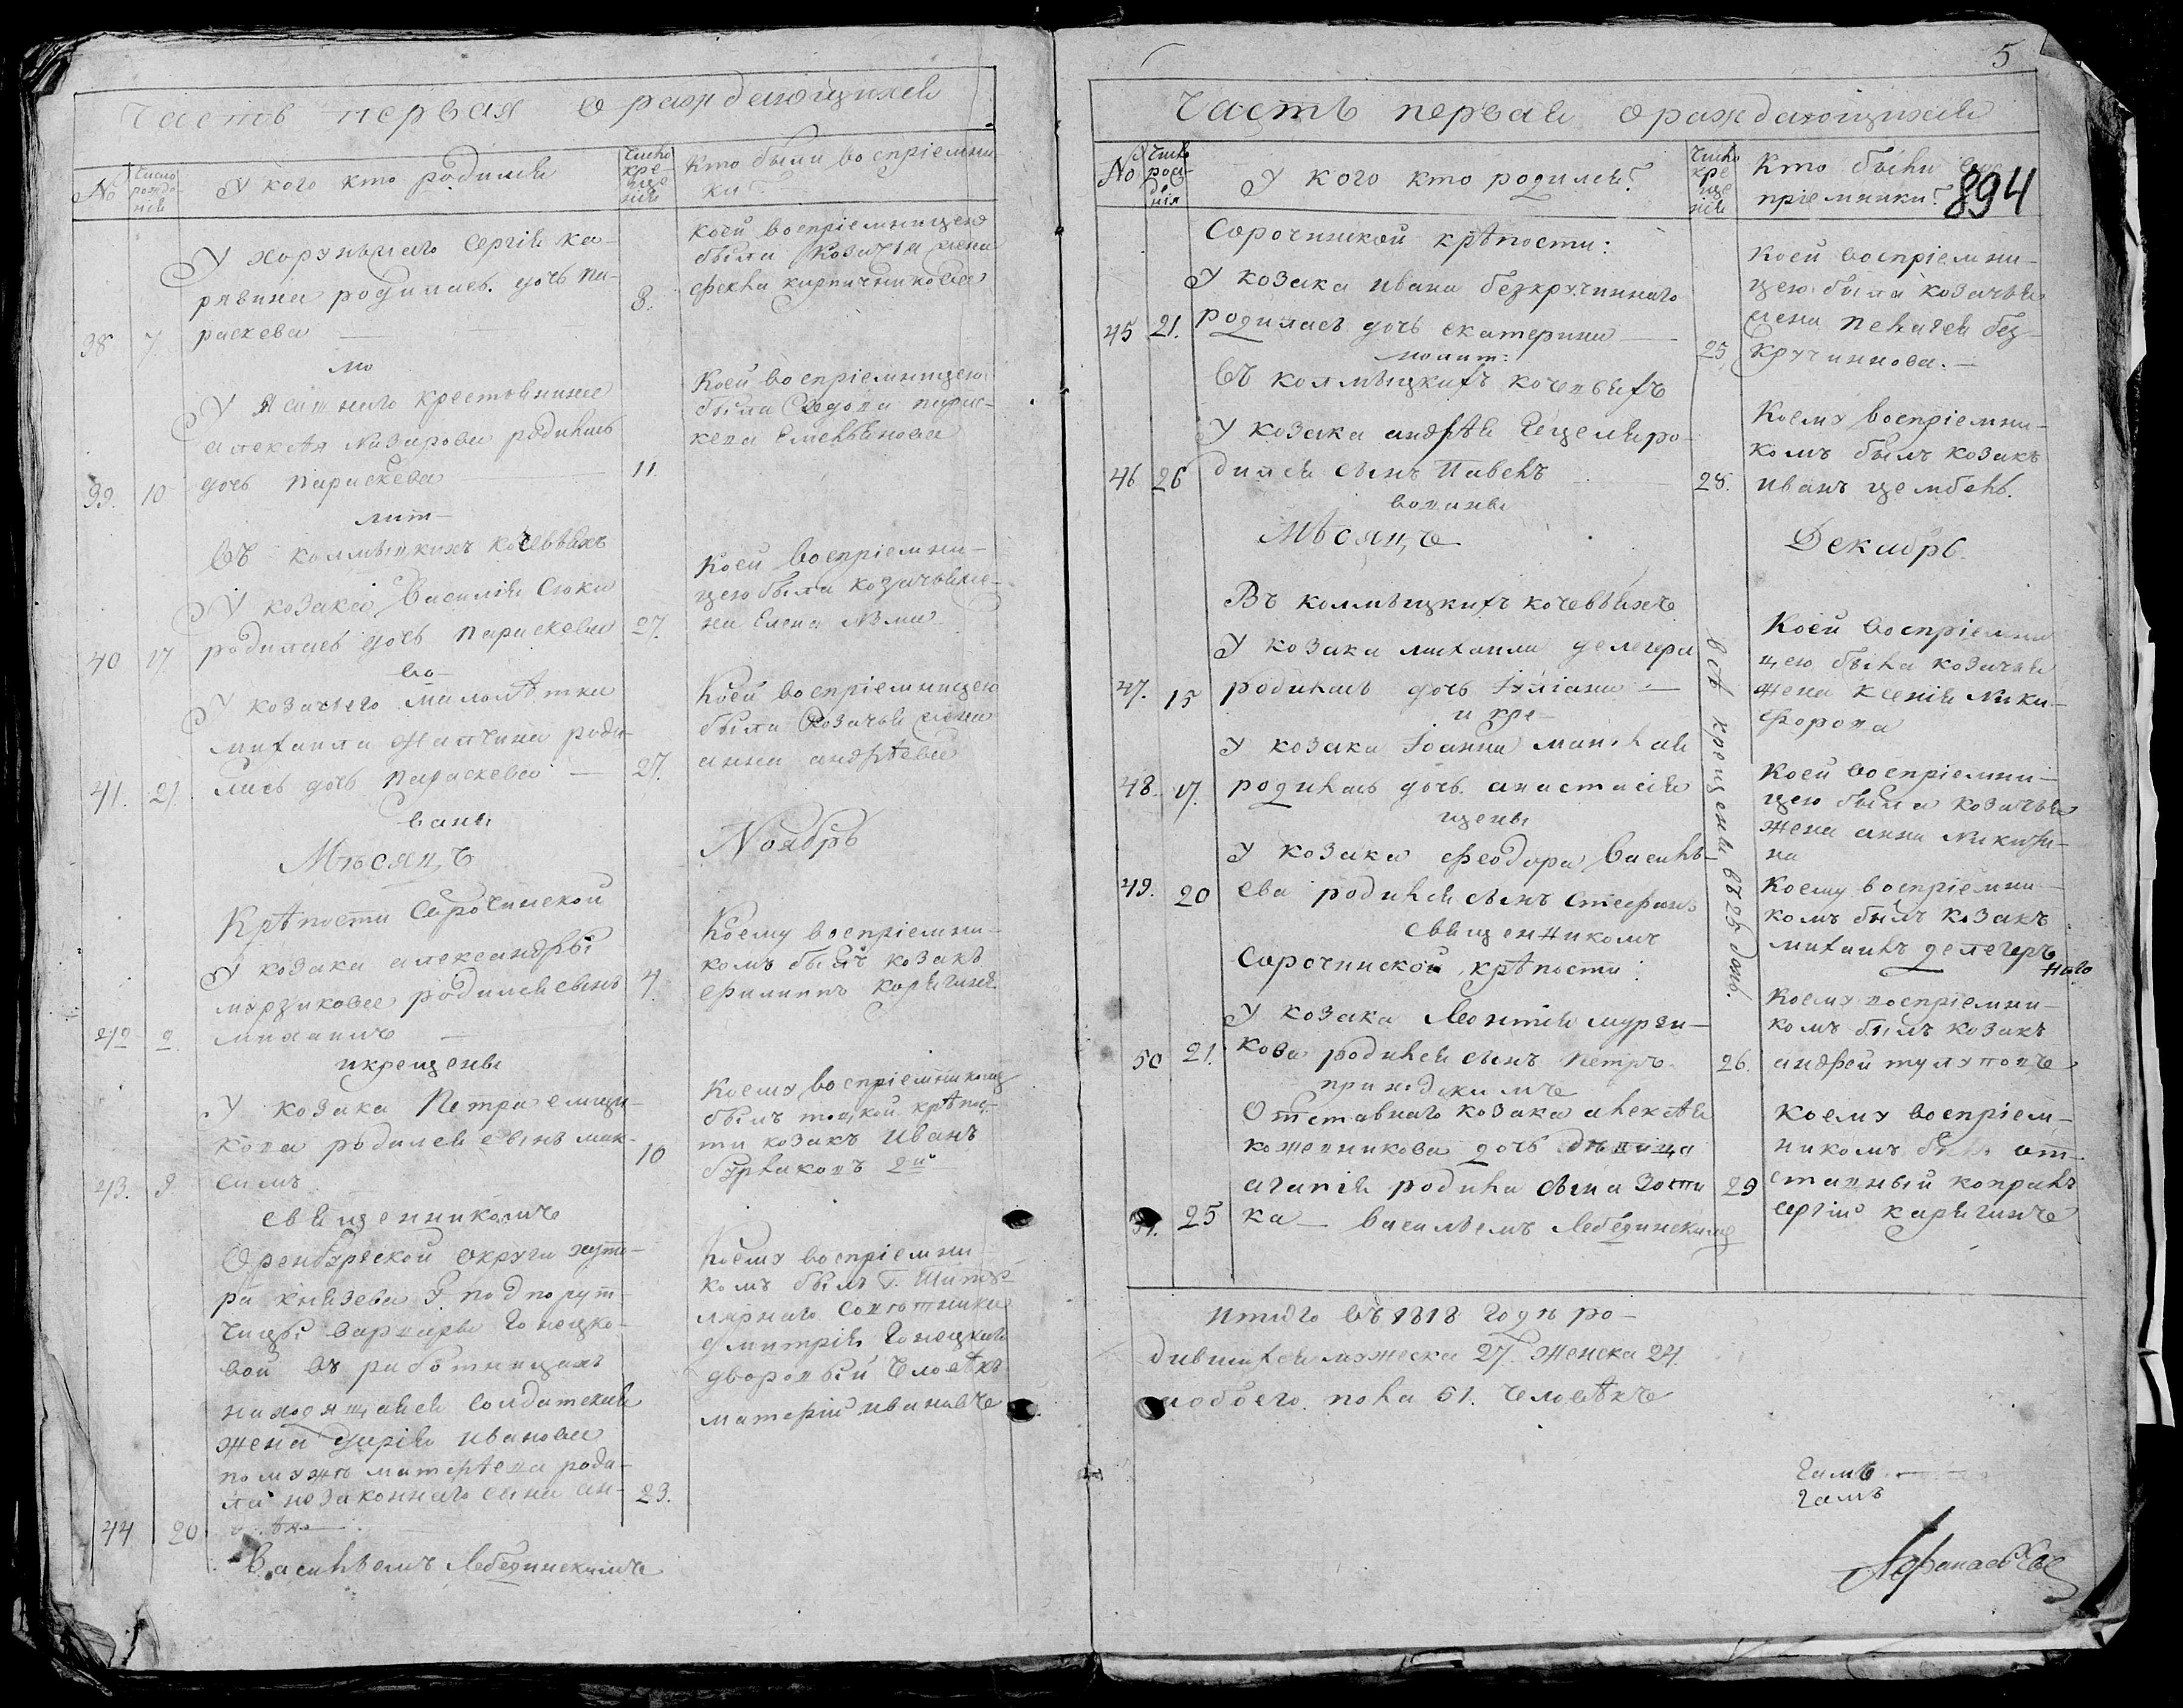 Часть первая о раждающихся
№
Число рожденія
У кого кто родился
Число крещенія
Кто были воспріемники
У хорунжаго Сергія Ка-
рягина родилась дочь Па-
38 7 раскева 8.
Коей воспріемницею
была козачья жена
Фекла Кирпичникова
мо
У ясашнаго крестьянина
Алексѣя Назарова родилась
39. 10 дочь Параскева 11.
Коей воспріемницею
была вдова Парас-
кева Емельянова
лит-
Въ колмыцкихъ кочеввяхъ
У козака Василія
40 17 родилась дочь Параскева 27.
Коей воспріемни-
цею была козачья же-
на Елена
во-
У козачьего малолѣтка
михаила родı-
41. 21. лась дочь Параскева 27.
Коей воспріемницею
была козачья жена
анна андрѣева
ваны
Мѣсяцъ Ноябрь
Крѣпости Сорочинской
У козака александры
мурзикова родился сынъ 4.
42 2. михаилъ
Коему воспріемни-
комъ былъ козакъ
филиппъ Карягинъ
и крещены
У козака Петра
кова родился сынъ мак- 10
43. 9. симъ
Коему воспріемникомъ
былъ той крѣпос-
ти козакъ Иванъ
бурлаковъ 2й
священникомъ
Оренбургской округи хуто-
ра князева У подпорут-
чицы варвары Гонецко-
вой въ работницахъ
находящаяся солдатская
жена дарія иванова
по мужѣ матвѣева роди-
ла незаконнаго сына ан- 23.
44 20
Коему воспріемни-
комъ былъ Г. Титу-
лярнаго совѣтника
дмитрія Гонецкаго
дворовый человѣкъ
матвѣй ивановъ
Васильемъ Лебединскимъ
5
Часть первая о раждающихся
894
№
Число рожденія
У кого кто родился?
Число крещенія
Кто были воспріемники?
Сорочинской крѣпости:
У козака ивана безкручиннаго
45 21. родилась дочь екатерина 25
Коей воспріемни-
цею была козачья
жена пелагея без-
кручиннова.
молит:
Въ колмыцкихъ кочевьяхъ
У козака андрѣя ро-
46 26 дился сынъ Павелъ 28.
Коему воспріемни-
комъ былъ козакъ
иванъ цембель.
вованы
Мѣсяцъ Декабрь
Въ колмыцкихъ кочеввяхъ
У козака михаила делегера
47. 15 родилась дочь Іуліана
Коей воспріемни
цею была козачья
жена Ксенія Ники-
форова
всѣ крещены въ 25 день.
и кре-
У козака Іоанна
48. 17. родилась дочь анастасія
Коей воспріемни-
цею была козачья
жена анна
на
щены
У козака феодора Василь-
49. 20 ева родился сынъ Стефанъ
Коему воспріемни-
комъ былъ козакъ
михаилъ делегеръ
священникомъ
Сорочинской крѣпости:
У козака Леонтія мурзи-
50 21. кова родился сынъ Петръ 26.
Коему воспріемни-
комъ былъ козакъ
андрей тулуповъ
приходскимъ
Отставнаго козака алексѣя
кожевникова дочь дѣвица
агапія родила сына Зоти 29
51. 25 ка Васильемъ Лебединскимъ
Коему воспріем-
никомъ былъ от-
ставный капралъ
сергій карягинъ
Итого въ 1818 годѣ ро-
дившихся мужеска 27. Женска 24.
и обоего пола 51. Человѣкъ